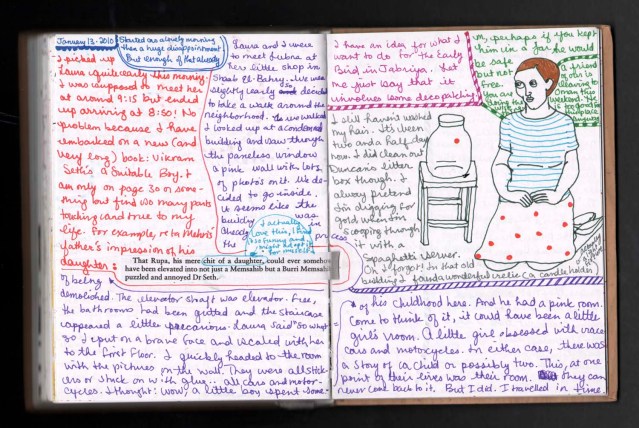 January 13 · 2010
Started as a lovely morning
then a huge disappointment
But enough of that already
I picked up
Laura quite early this morning.
I was supposed to meet her
at around 9:15 but ended
up arriving at 8:50! No
problem because I have
embarked on a new (and
very long) book: Vikram
Seth's A Suitable Boy. I
am only on page 30 or some-
thing but find so many parts
touching and true to my
life. For example, re Mehra's
father's impression of his
daughter:
Laura and I were
to meet Lubna at
her little shop in
Souk El-Bahey. We were
slightly early so decided
to take a walk around the
neighborhood. As we walked
I looked up at a condemned
building and saw through
the paneless window
a pink wall with lots
of photos on it. We de-
cided to go inside.
It seems like the
building was
already in
the process
I actually
love this, I find
it so funny and
might keep it
for myself
That Rupa, his mere chit of a daughter, could ever somehow
have been elevated into not just a Memsahib but a Burri Memsahib
puzzled and annoyed Dr Seth.
of being
demolished. The elevator shaft was elevator-free,
the bathrooms had been gutted and the staircase
appeared a little precarious. Laura said "so what"
so I put on a brave face and scaled with her
to the first floor. I quickly headed to the room
with the pictures on the wall. They were all stick-
ers or stuck on with glue... all cars and motor-
cycles. I thought: wow, a little boy spent some-
I have an idea for what I
want to do for the Early
Bird in Jabriya. Let
me just say that it
involves some decopatching
m, perhaps if you kept
him in a jar he would
be safe
but not
free.
You are
A friend
of ours is
leaving to
Oman this
weekend.
I still haven't washed
my hair. It's been
two and a half days
now. I did clean out
Duncan's litter
box though. I
always pretend
I'm digging for
gold when I'm
scooping through
it with a
spaghetti server.
Oh I forgot! In that old
building I found a wonderful relic (a candle holder)
of his childhood here. And he had a pink room.
Come to think of it, it could have been a little
girl's room. A little girl obsessed with race
cars and motorcycles. In either case, there was
a story of (a child or possibly two. This, at one
point of their lives was their room. They can
never come back to it. But I did. I travelled in time.